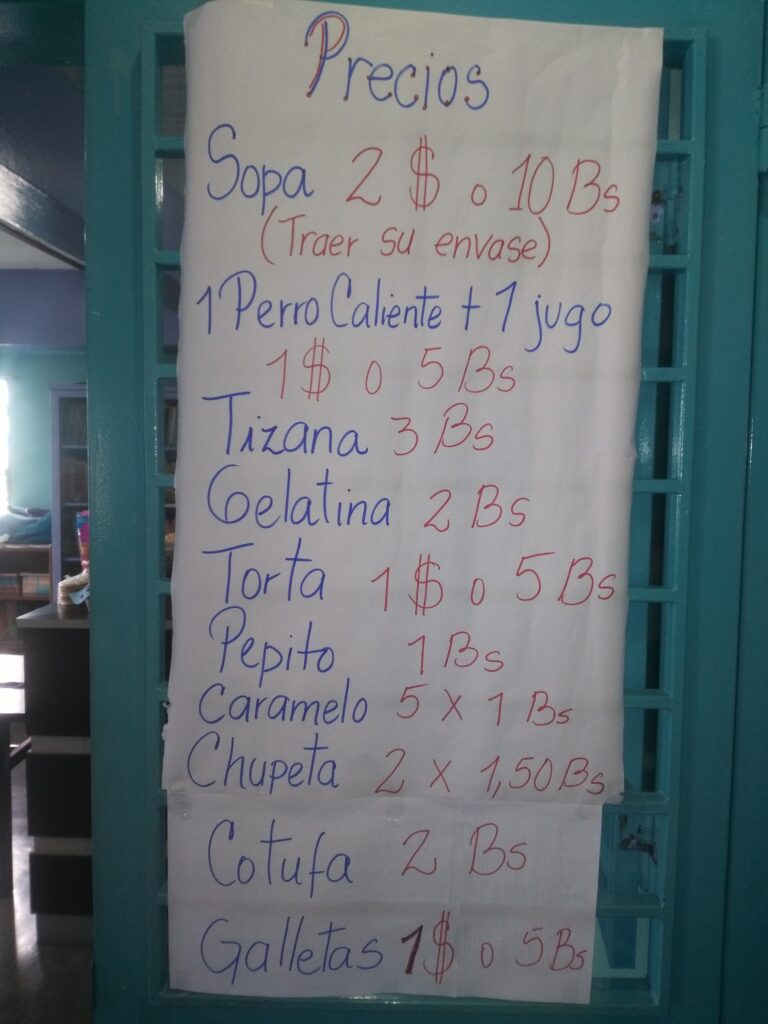 Precios
Sopa 2 $ o 10 Bs
(Traer su envase)
1 Perro Caliente + 1 jugo
1 $ o 5 Bs
Tizana 3 Bs
Gelatina 2 Bs
Torta 1 $ o 5 Bs
Pepito 1 Bs
Caramelo 5 x 1 Bs
Chupeta 2 x 1,50 Bs
Cotufa 2 Bs
Galletas 1 $ o 5 Bs